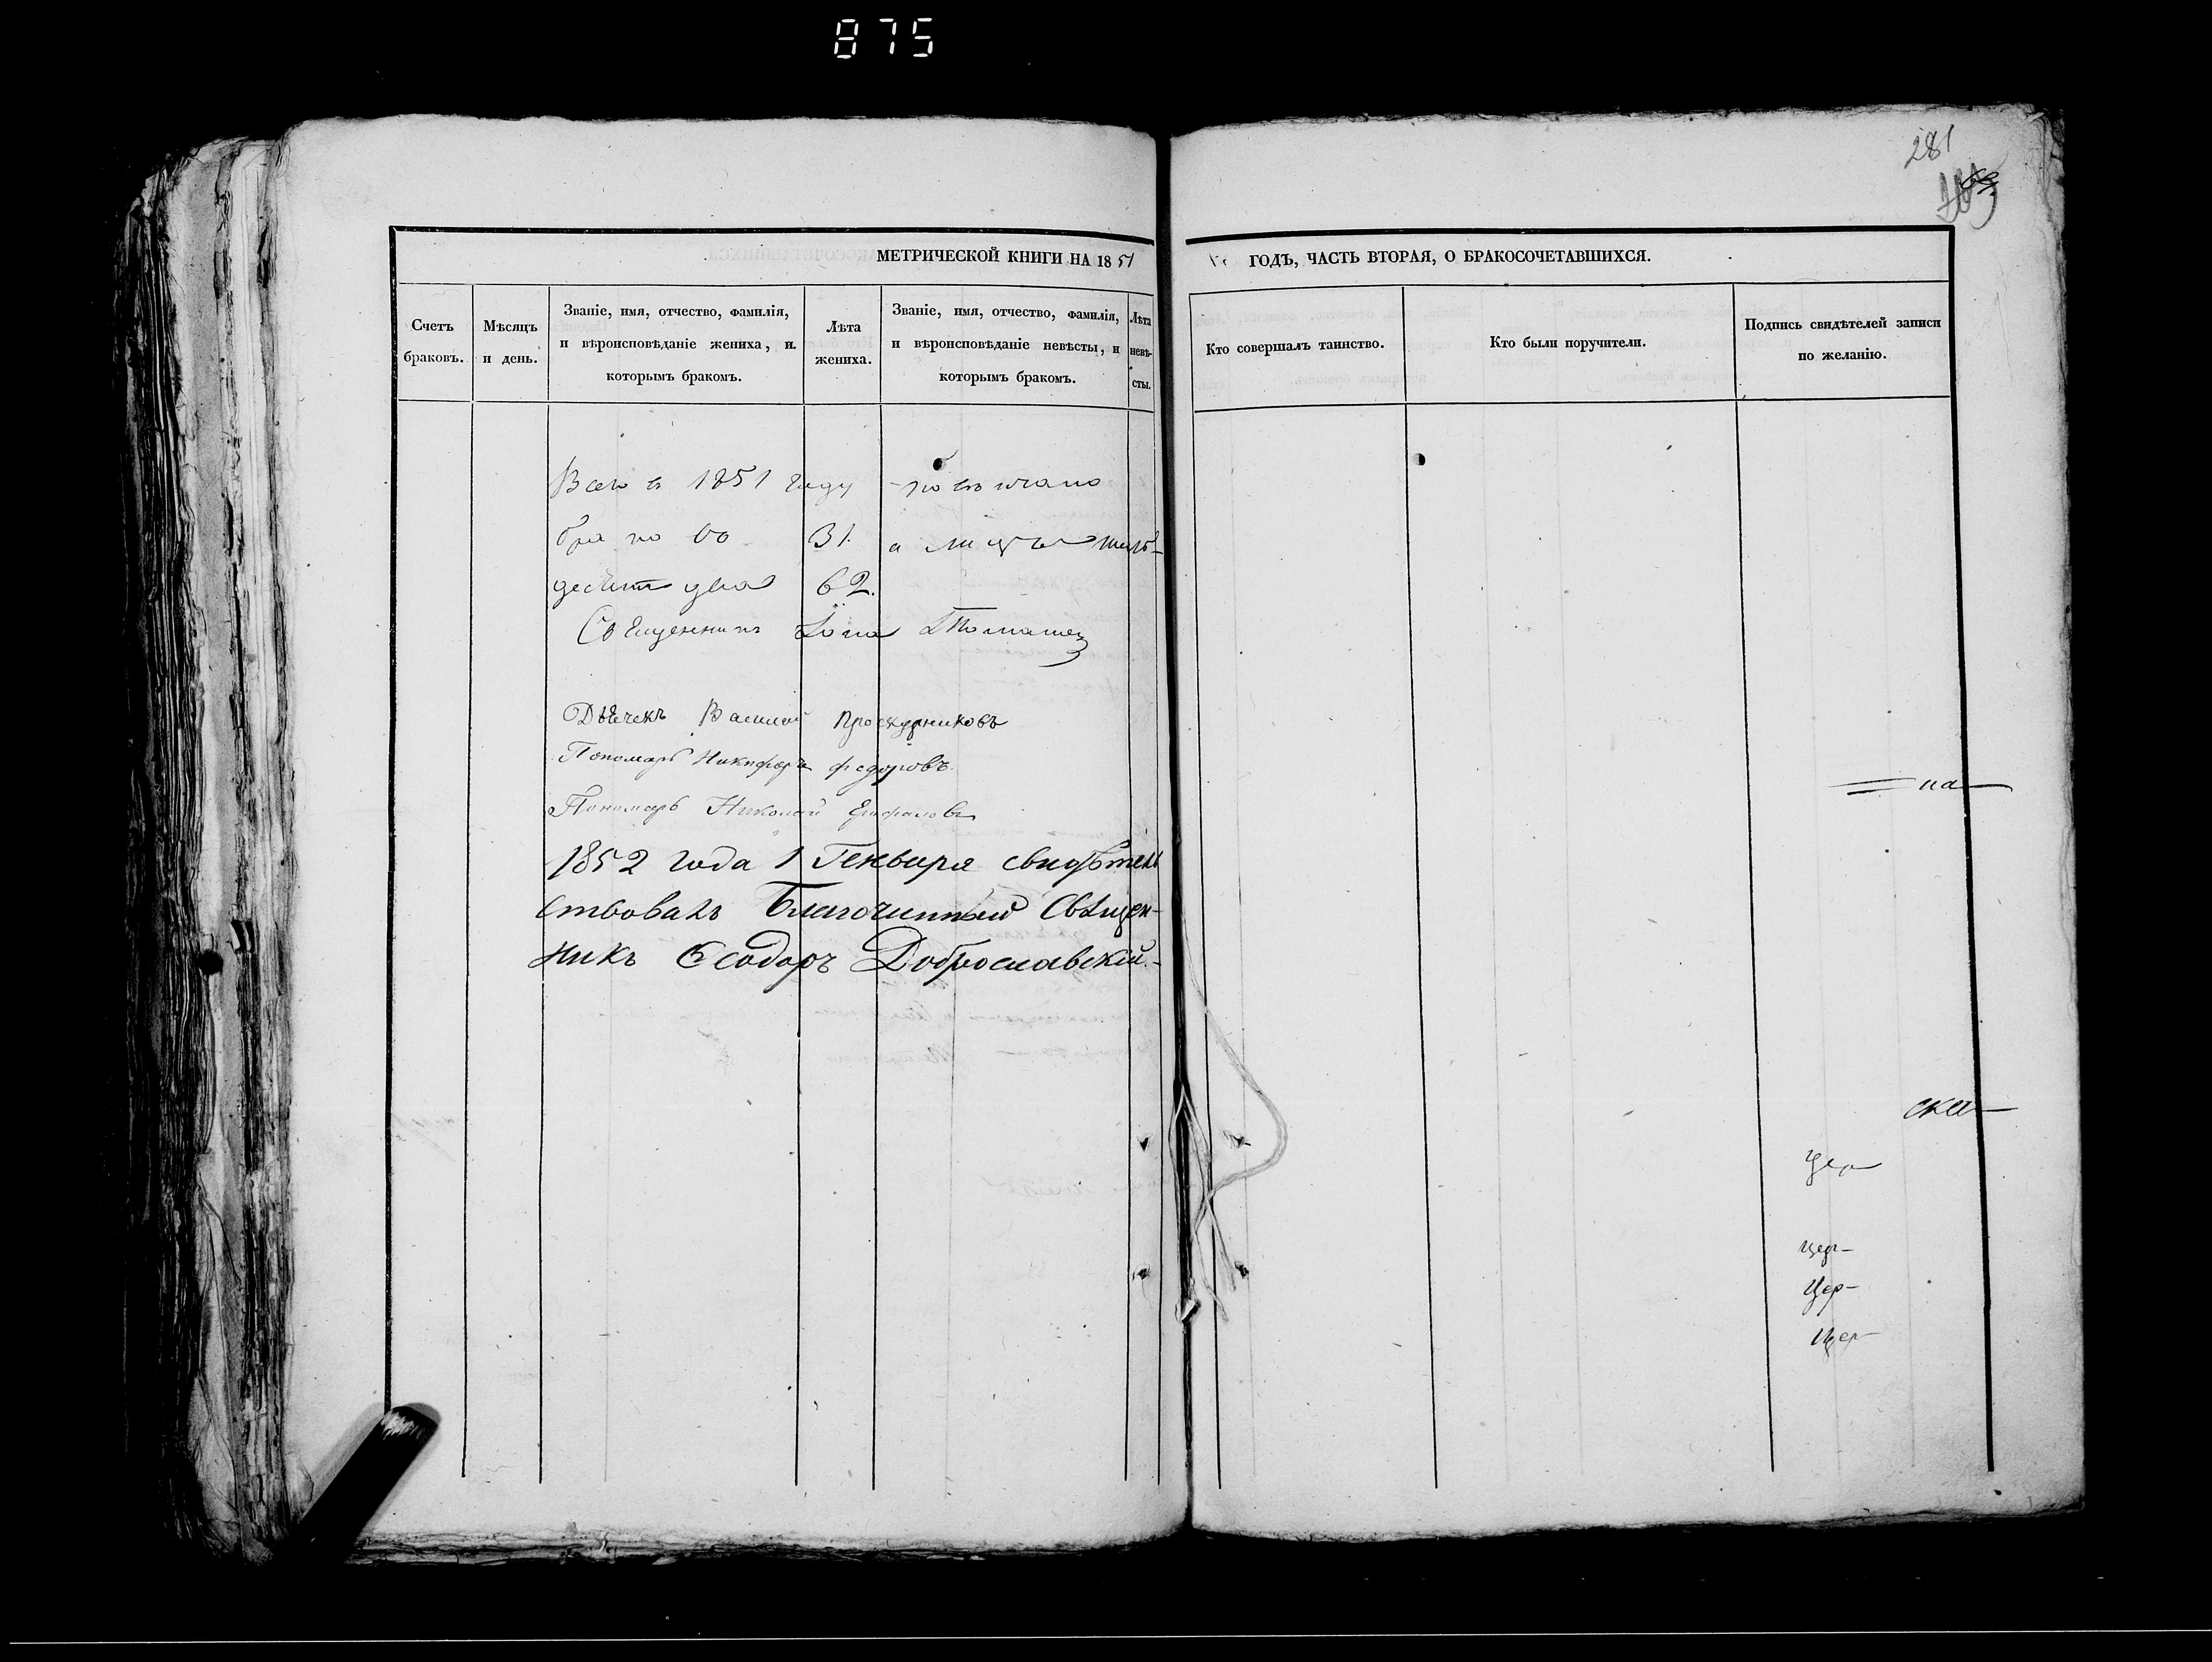 875
281
МЕТРИЧЕСКОЙ КНИГИ НА 1851 ГОДЪ, ЧАСТЬ ВТОРАЯ, О БРАКОСОЧЕТАВШИХСЯ.
Счетъ браковъ.
Мѣсяцъ и день.
Званіе, имя, отчество, фамилія, и вѣроисповѣданіе жениха, и которымъ бракомъ.
Лѣта жениха.
Званіе, имя, отчество, фамилія, и вѣроисповѣданіе невѣсты, и которымъ бракомъ.
Лѣта невѣсты.
Кто совершалъ таинство.
Кто были поручители.
Подпись свидѣтелей записи по желанію.
Всего в 1851 году повѣнчано
браковъ 31. а лицъ шесть-
десятъ два 62.
Священникъ Іона
Дьячекъ Василій Проскурниковъ
Пономарь Никифоръ Федоровъ.
Пономарь Николай
1852 года 1 Генваря свидѣтель
ствовалъ Благочинный Священ-
никъ Ѳеодоръ Доброславскій.-
на
ска
Цер
цер-
Цер-
Цер-